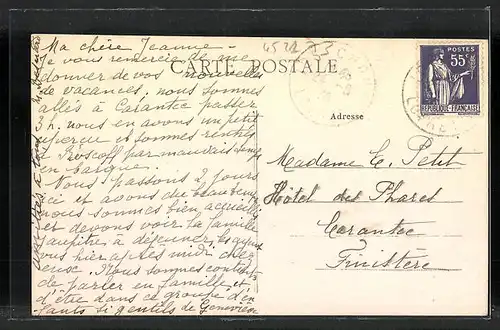 Ma chère Jeanne -
Je vous remercie de me
donner de vos nouvelles
de vacances. nous sommes
allés à Carantec passer
h. nous en avons un petit
aperçu et sommes rentrés
à Roscoff par mauvais temps
en barque.
Nous passons 2 jours
ici et avons du beau temps
nous sommes bien accueillis
et devons voir la famille
à déjeuner, les ayant
vus hier après midi chez
eux. Nous sommes contents
de parler en famille et
d'être dans ce groupe d'en
fants si gentils de Geneviève
CARTE POSTALE
Adresse
POSTES
55c
REPUBLIQUE FRANÇAISE
Madame C. Petit
Hôtel des Phares
Carantec
Finistère